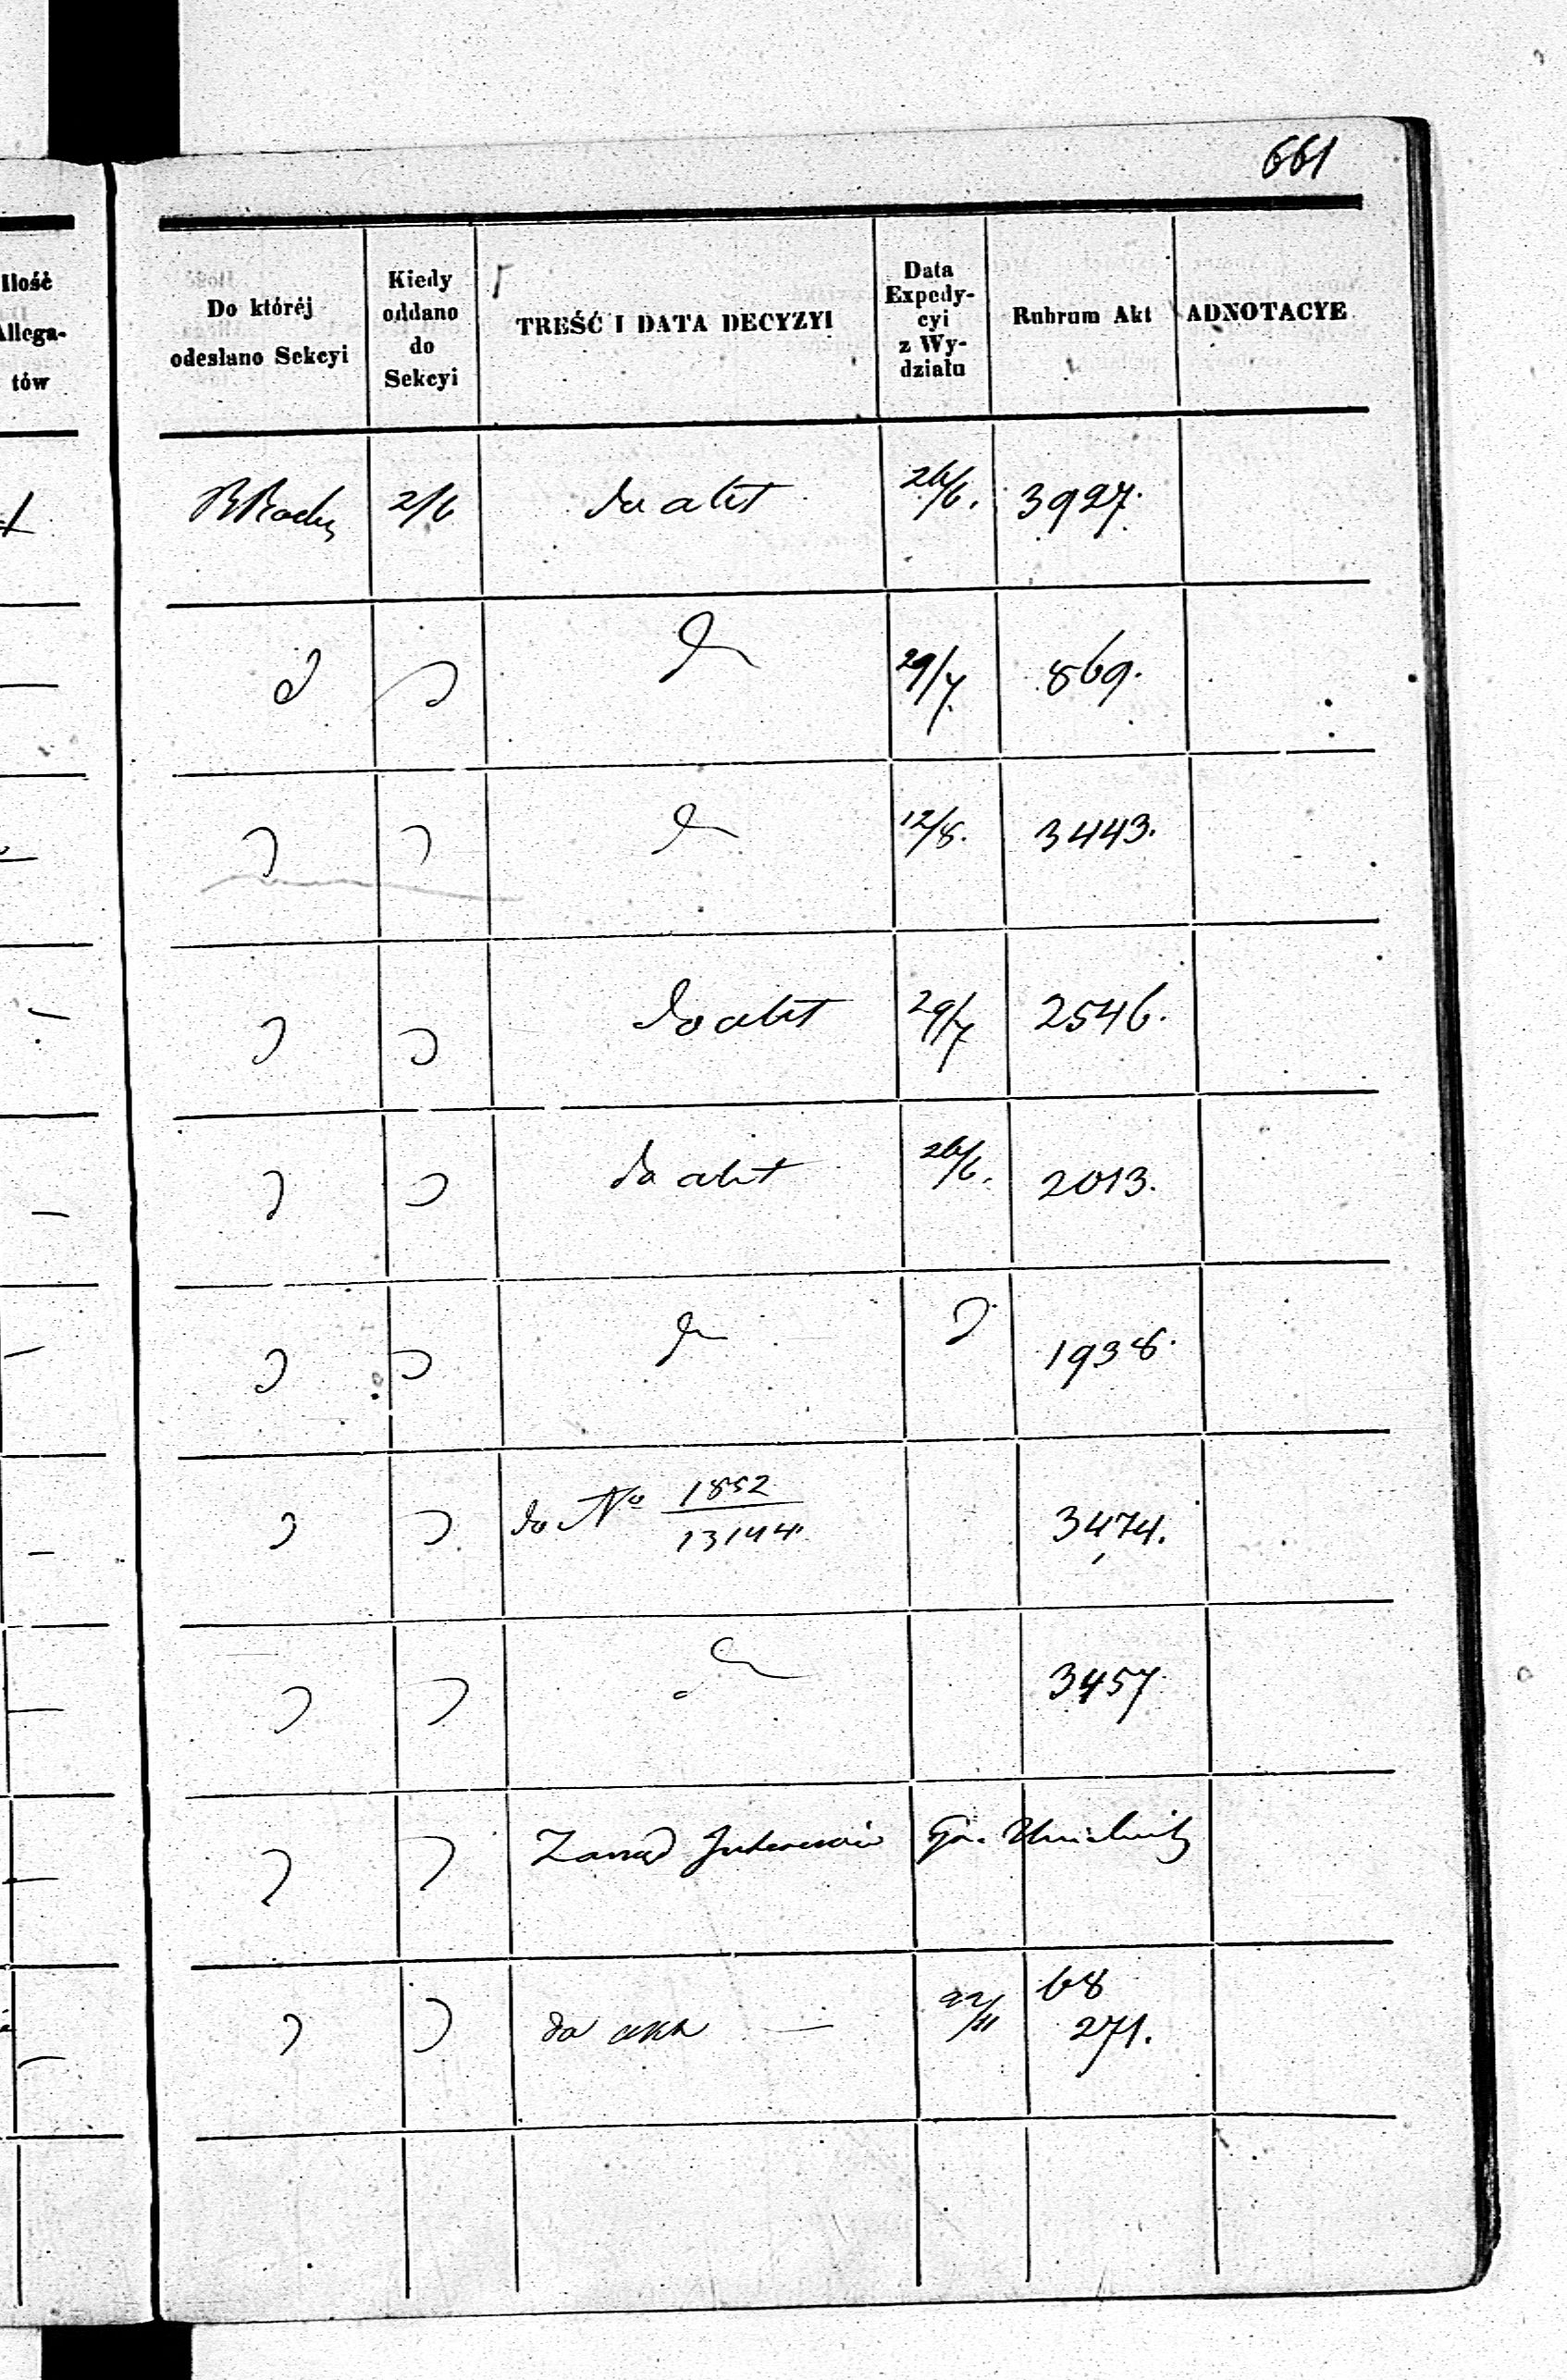 661
Ilość
Allega-
tów
Do któréj
odesłano Sekcyi
Kiedy
oddano
do
Sekcyi
TREŚĆ I DATA DECYZYI
Data
Expedy-
cyi
z Wy-
działu
Rubrum Akt
ADNOTACYE
2/6 do akt 26/6. 3927.
29/7. 869.
12/8. 3443.
do akt 29/7 2546.
do akt 26/6. 2013.
1938.
do No 1852
13144. 3474.
3457
Zarząd
do akt — 22/11 68
271.